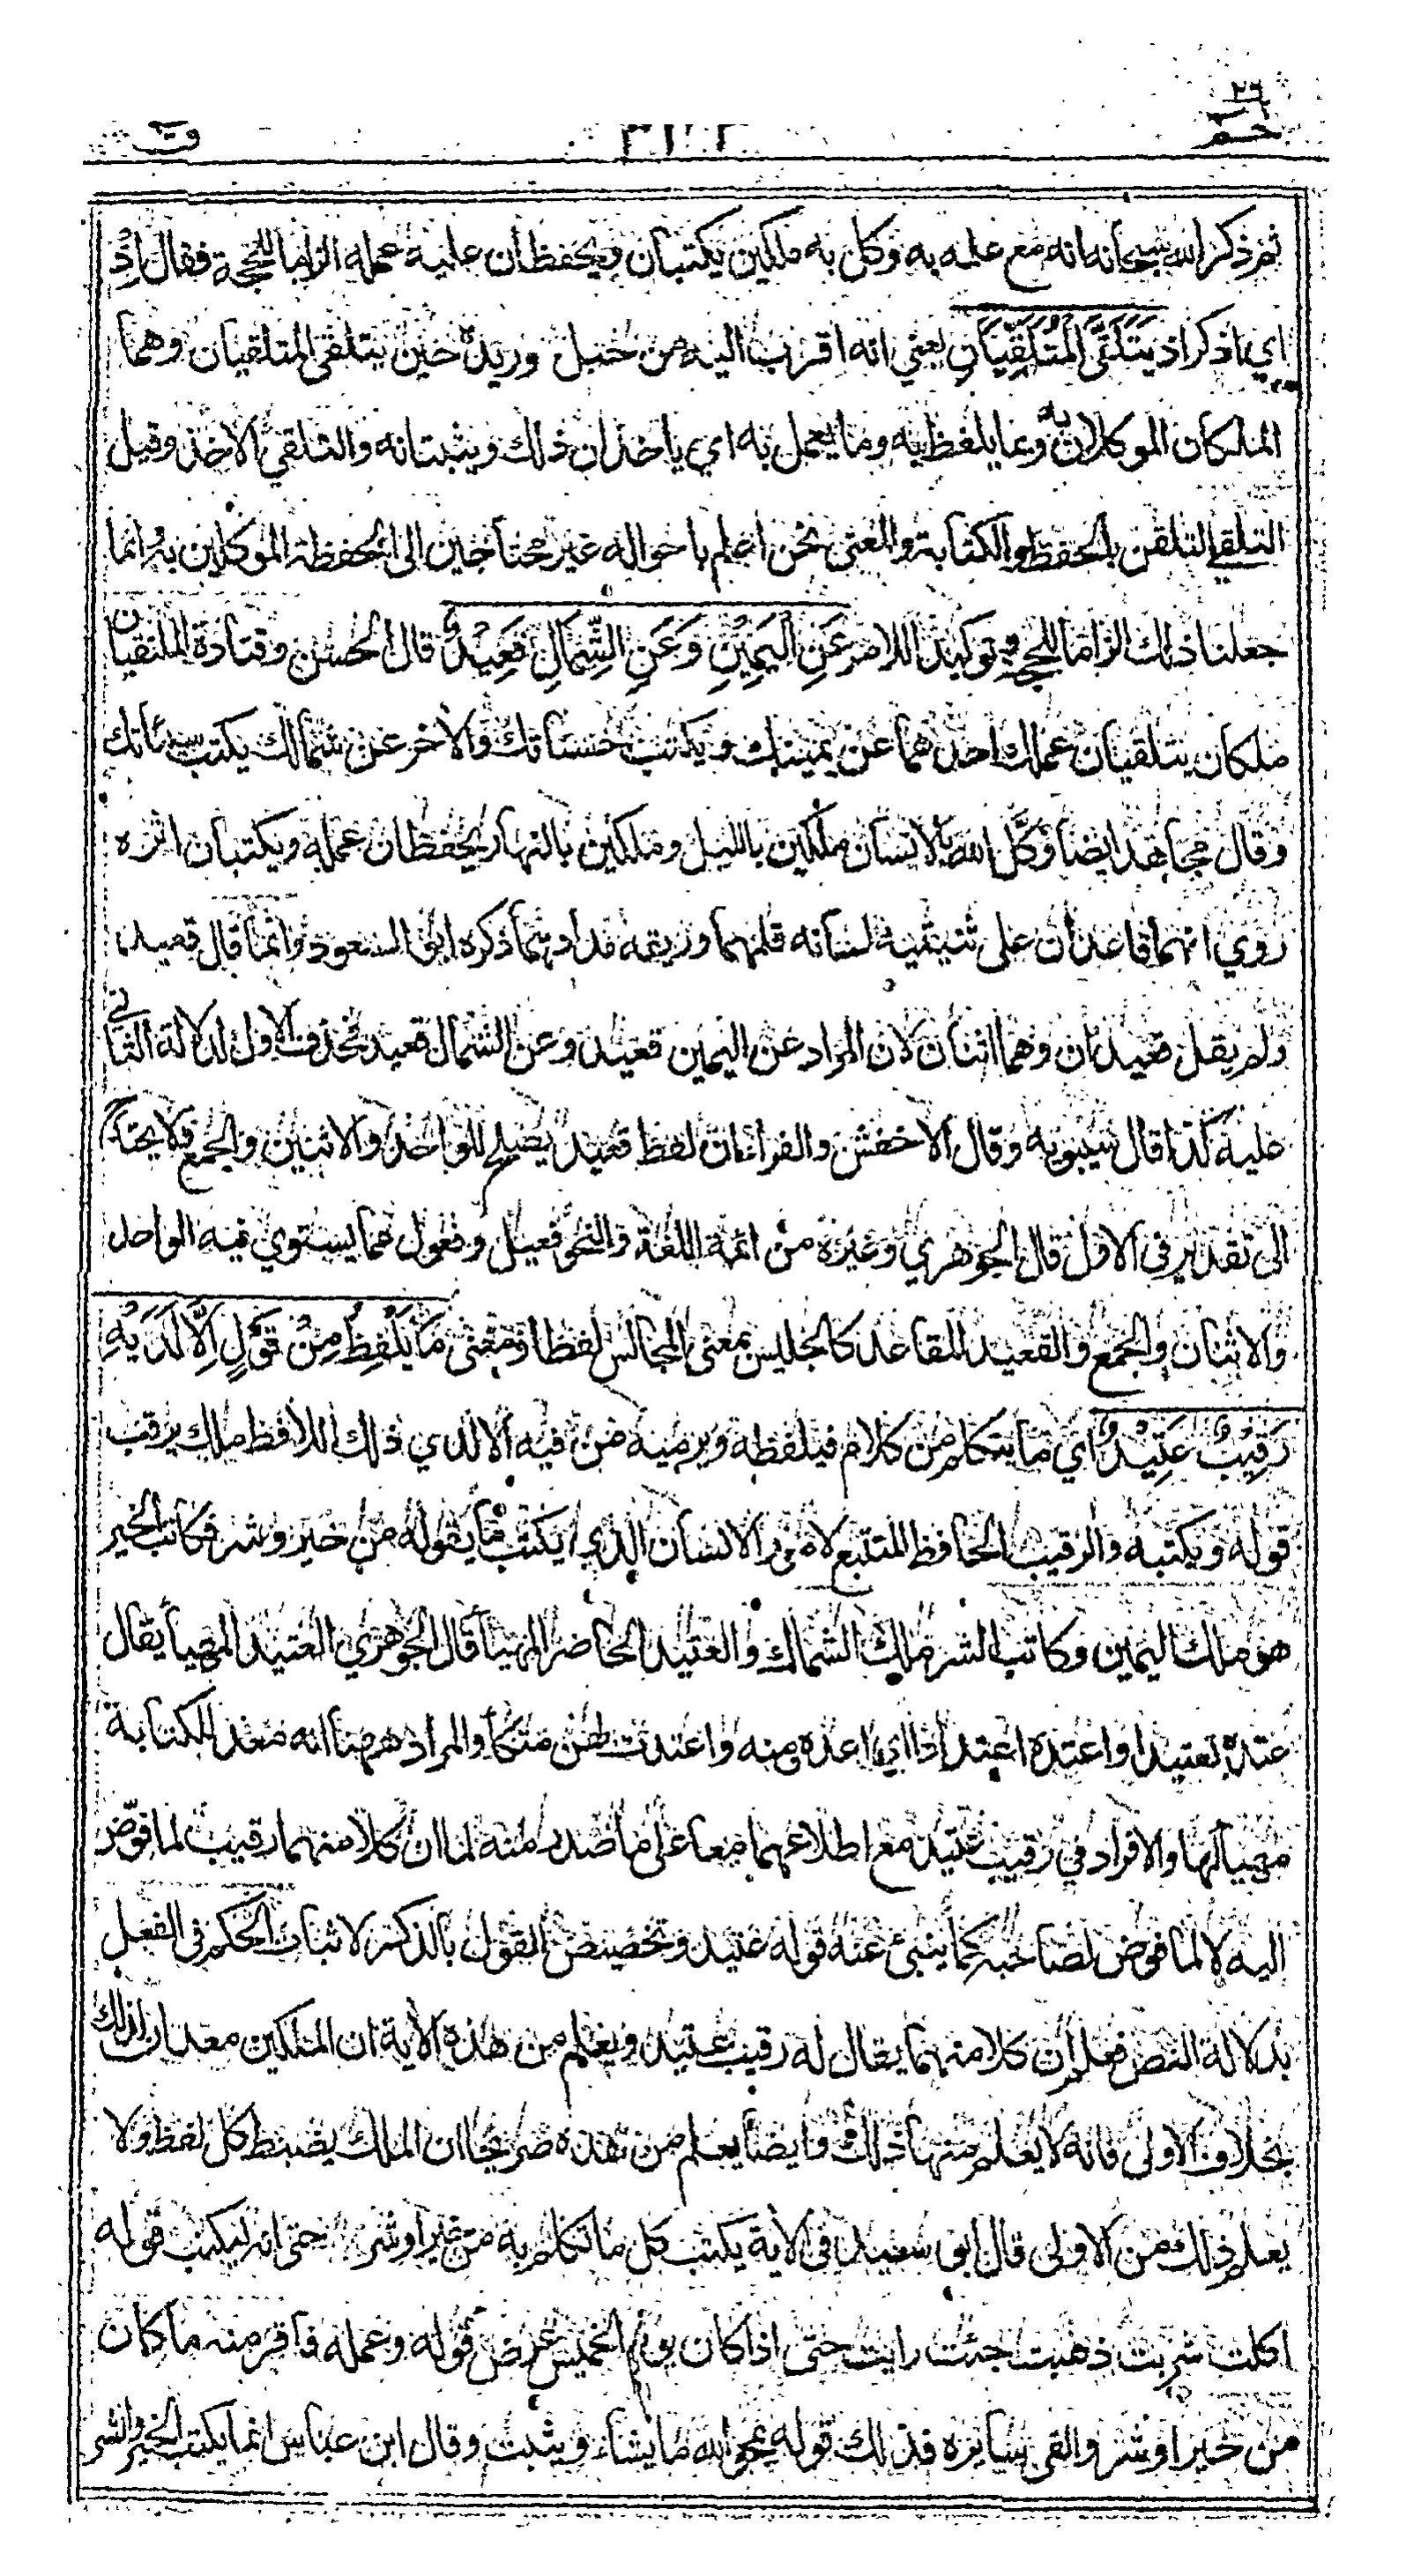 حم ٢٦
ق
ثم ذكر الله سبحانه انه مع علمه به وكل به ملكين يكتبان ويحفظان عليه عمله الزاما للحجة فقال اذ
اي اذكر اذ يَتَلَقَّى الْمُتَلَقِّيَانِ يعني انه اقرب اليه من حبل وريده حين يتلقى المتلقيان وهما
الملكان الموكلان به وعا يلفظ به وما يعمل به اي ياخذان ذلك ويثبتانه والتلقي الاخذ وقيل
التلقي التلقن بالحفظ والكتابة والمعنى نحن اعلم باحواله غير محتاجين الى الحفظة الموكلين به وانما
جعلنا ذلك الزاما للحجة وتوكيدا للامر عَنِ الْيَمِيْنِ وَعَنِ الشِّمَالِ قَعِيْدٌ قال الحسن وقتادة المتلقيان
ملكان يتلقيان عملك احدهما عن يمينك ويكتب حسناتك والاخر عن شمالك يكتب سيئاتك
وقال مجاهد ايضا وَكَّل الله بالانسان ملكين بالليل وملكين بالنهار يحفظان عمله ويكتبان اثره
روي انهما قاعدان على ثنيتيه لسانه قلمهما وريقه مدادهما ذكره ابو السعود وانما قال قعيد
ولم يقل قعيدان وهما اثنان لان المراد عن اليمين قعيد وعن الشمال قعيد فحذف الاول لدلالة الثاني
عليه كذا قال سيبويه وقال الاخفش والفراء ان لفظ قعيد يصلح للواحد والاثنين والجمع فلا يحتاج
الى تقدير في الاول قال الجوهري وغيره من ائمة اللغة والنحو فعيل وفعول مما يستوي فيه الواحد
والاثنان والجمع والقعيد المقاعد كالجليس بمعنى المجالس لفظا ومعنى مَا يَلْفِظُ مِنْ قَوْلٍ اِلَّا لَدَيْهِ
رَقِيْبٌ عَتِيْدٌ اي ما يتكلم من كلام فيلفظه ويرميه من فيه الا لدي ذلك اللافظ ملك يرقب
قوله ويكتبه والرقيب الحافظ المتتبع لامور الانسان الذي يكتب ما يقوله من خير وشر فكاتب الخير
هو ملك اليمين وكاتب الشر ملك الشمال والعتيد الحاضر المهيأ قال الجوهري العتيد المهيأ يقال
عتده تعتيدا واعتده اعتدادا اي اعده ومنه واعتدت لهن متكأ والمراد ههنا انه معد للكتابة
مهيأ لها والافراد في رقيب عتيد مع اطلاعهما معا على ما صدر منه لما ان كلا منهما رقيب لما فوّض
اليه لا لما فوض لصاحبه كما ينبئ عنه قوله عتيد وتخصيص القول بالذكر لاثبات الحكم في الفعل
بدلالة النص فعلم ان كلا منهما يقال له رقيب عتيد ويعلم من هذه الاية ان الملكين معدان لذلك
بخلاف الاولى فانه لا يعلم منها ذلك وايضا يعلم من هذه صريحا ان الملك يضبط كل لفظ ولا
يعلم ذلك من الاولى قال ابو سعيد في الاية يكتب كل ما تكلم به من خير او شر حتى انه ليكتب قوله
اكلت شربت ذهبت جئت رايت حتى اذا كان يوم الخميس عرض قوله وعمله فاقر منه ما كان
من خير او شر والقى سايره فذلك قوله يمحو الله ما يشاء ويثبت وقال ابن عباس انما يكتب الخير والشر